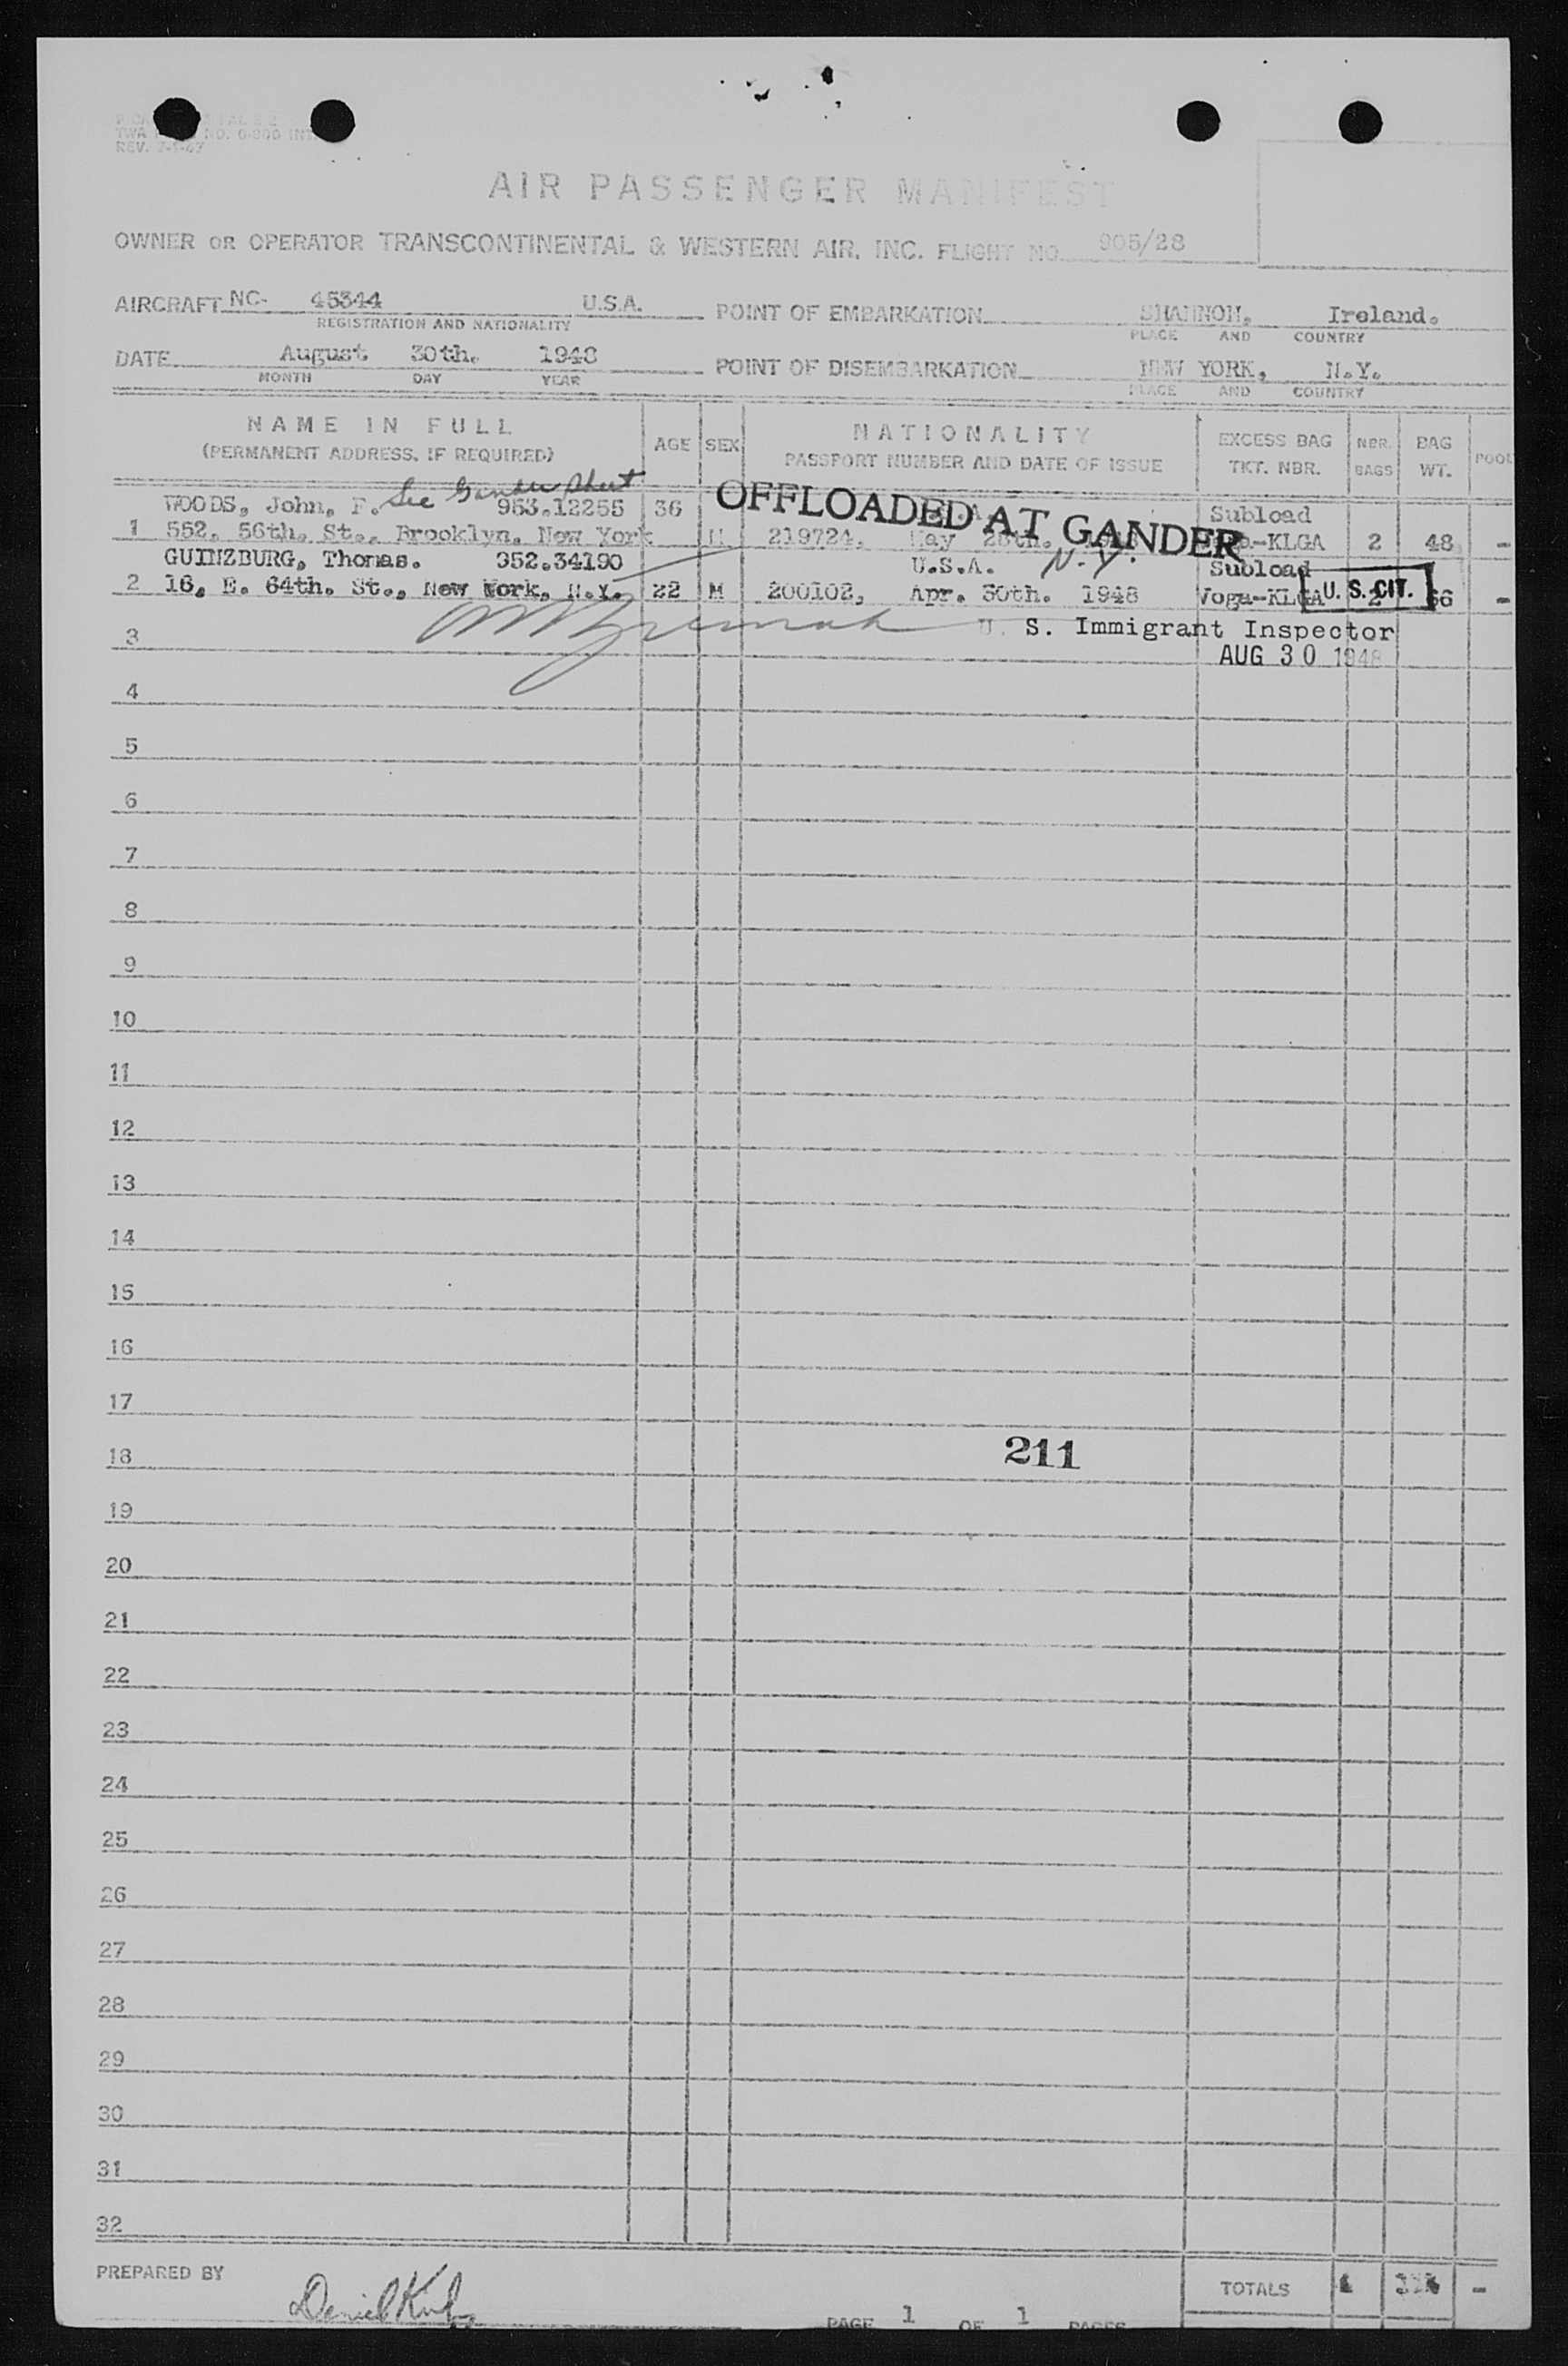 TWA NO. 0-806 INT
REV. 7-1-47
AIR PASSENGER MANIFEST
OWNER OR OPERATOR TRANSCONTINENTAL & WESTERN AIR, INC. FLIGHT NO. 905/28
AIRCRAFT NC- 45344 U.S.A. POINT OF EMBARKATION SHANNON, Ireland.
REGISTRATION AND NATIONALITY PLACE AND COUNTRY
DATE August 30th. 1948 POINT OF DISEMBARKATION NEW YORK, N.Y.
MONTH DAY YEAR PLACE AND COUNTRY
NAME IN FULL AGE SEX NATIONALITY EXCESS BAG NBR. BAG POOL
(PERMANENT ADDRESS, IF REQUIRED) PASSPORT NUMBER AND DATE OF ISSUE TKT. NBR. BAGS WT.
WOODS, John, F. See Gander Sheet 953.12255 36 OFFLOADED AT GANDER Subload
1 552, 56th. St., Brooklyn, New York M 219724, May 28th. -KLGA 2 48 -
GUINZBURG, Thomas. 952.34190 U.S.A. N.Y. Subload
2 16, E. 64th. St., New York, N.Y. 22 M 200102, Apr. 30th. 1948 Voga-KLGA 2 66 -
U. S. CIT.
3 U. S. Immigrant Inspector
AUG 30 1948
4
5
6
7
8
9
10
11
12
13
14
15
16
17
18 211
19
20
21
22
23
24
25
26
27
28
29
30
31
32
PREPARED BY Daniel TOTALS 4 -
PAGE 1 OF 1 PAGES